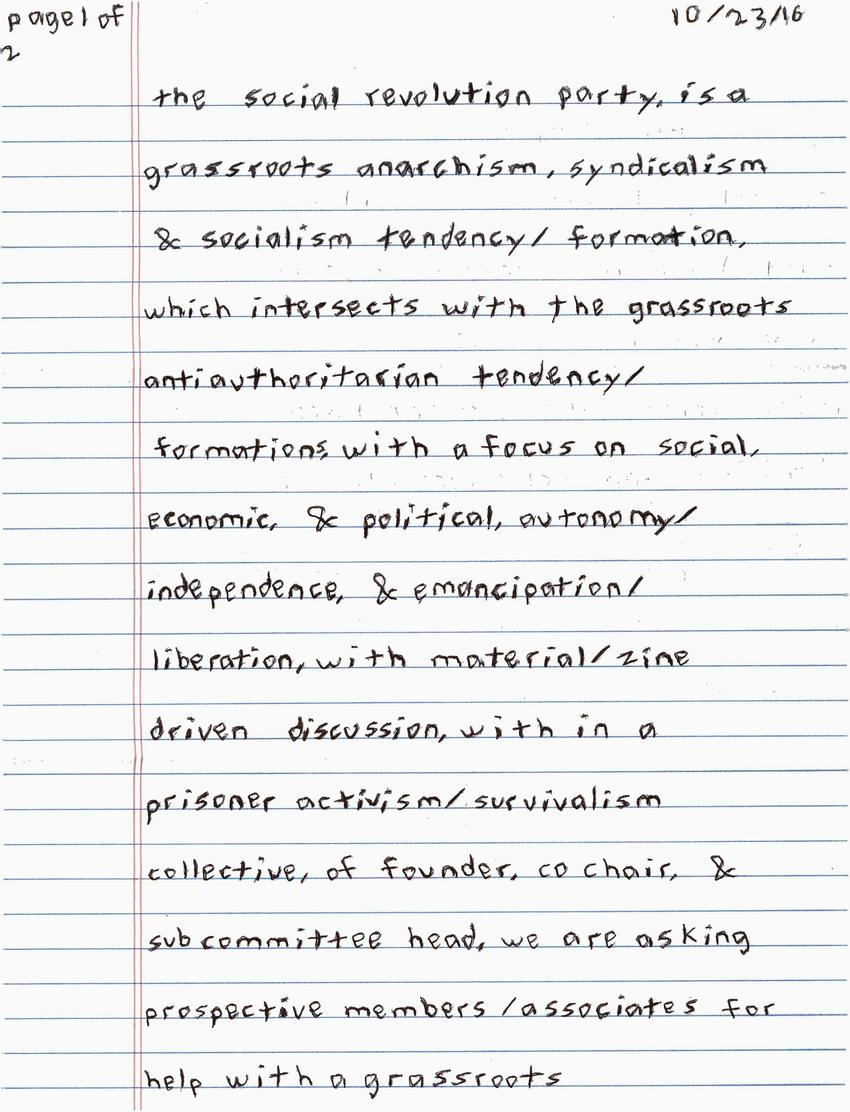 page 1 of
2
10/23/16
the social revolution party, is a
grassroots anarchism, syndicalism
& socialism tendency/ formation,
which intersects with the grassroots
antiauthoritarian tendency/
formations, with a focus on social,
economic, & political, autonomy/
independence, & emancipation/
liberation, with material/zine
driven discussion, with in a
prisoner activism/survivalism
collective, of founder, co chair, &
sub committee head, we are asking
prospective members /associates for
help with a grassroots